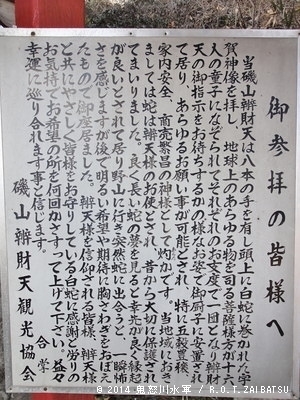 御参拝の皆様へ
当磯山辨財天は八本の手を有し頭上に白蛇に巻かれた宇
賀神像を拝し、地球上のあらゆる物を司る善神様方が十六
人の童子になぞられてそれぞれのお支度で一団となり辨財
天の御指示をお待ちするかの様なお姿で御厨子に安置され
て居り、あらゆるお願い事が可能とされ、特に五穀豊穣、
家内安全、商売繁昌の神様として灼かです。当地域におき
ましては蛇は辨天様のお使とされ、昔から大切に保護され
てまいりました。良く長い蛇の夢を見ると幸先が良く縁起
が良いとされて居り野山に行き突然蛇に出会うと、一瞬怖
さを感じますが後で明るい希望や期待に胸さわぎをおぼえ
たもので御座居ました。辨天様を信仰される皆様、辨天様
と共にやさしく皆様をお守りしている白蛇に感謝と労りの
お気持でお希望の所を何回かさすって上げて下さい。益々
幸運に巡り合れます事と信じます。
合掌
磯山辨財天観光協会
© 2014 鬼怒川水軍 / R.O.T.ZAIBATSU